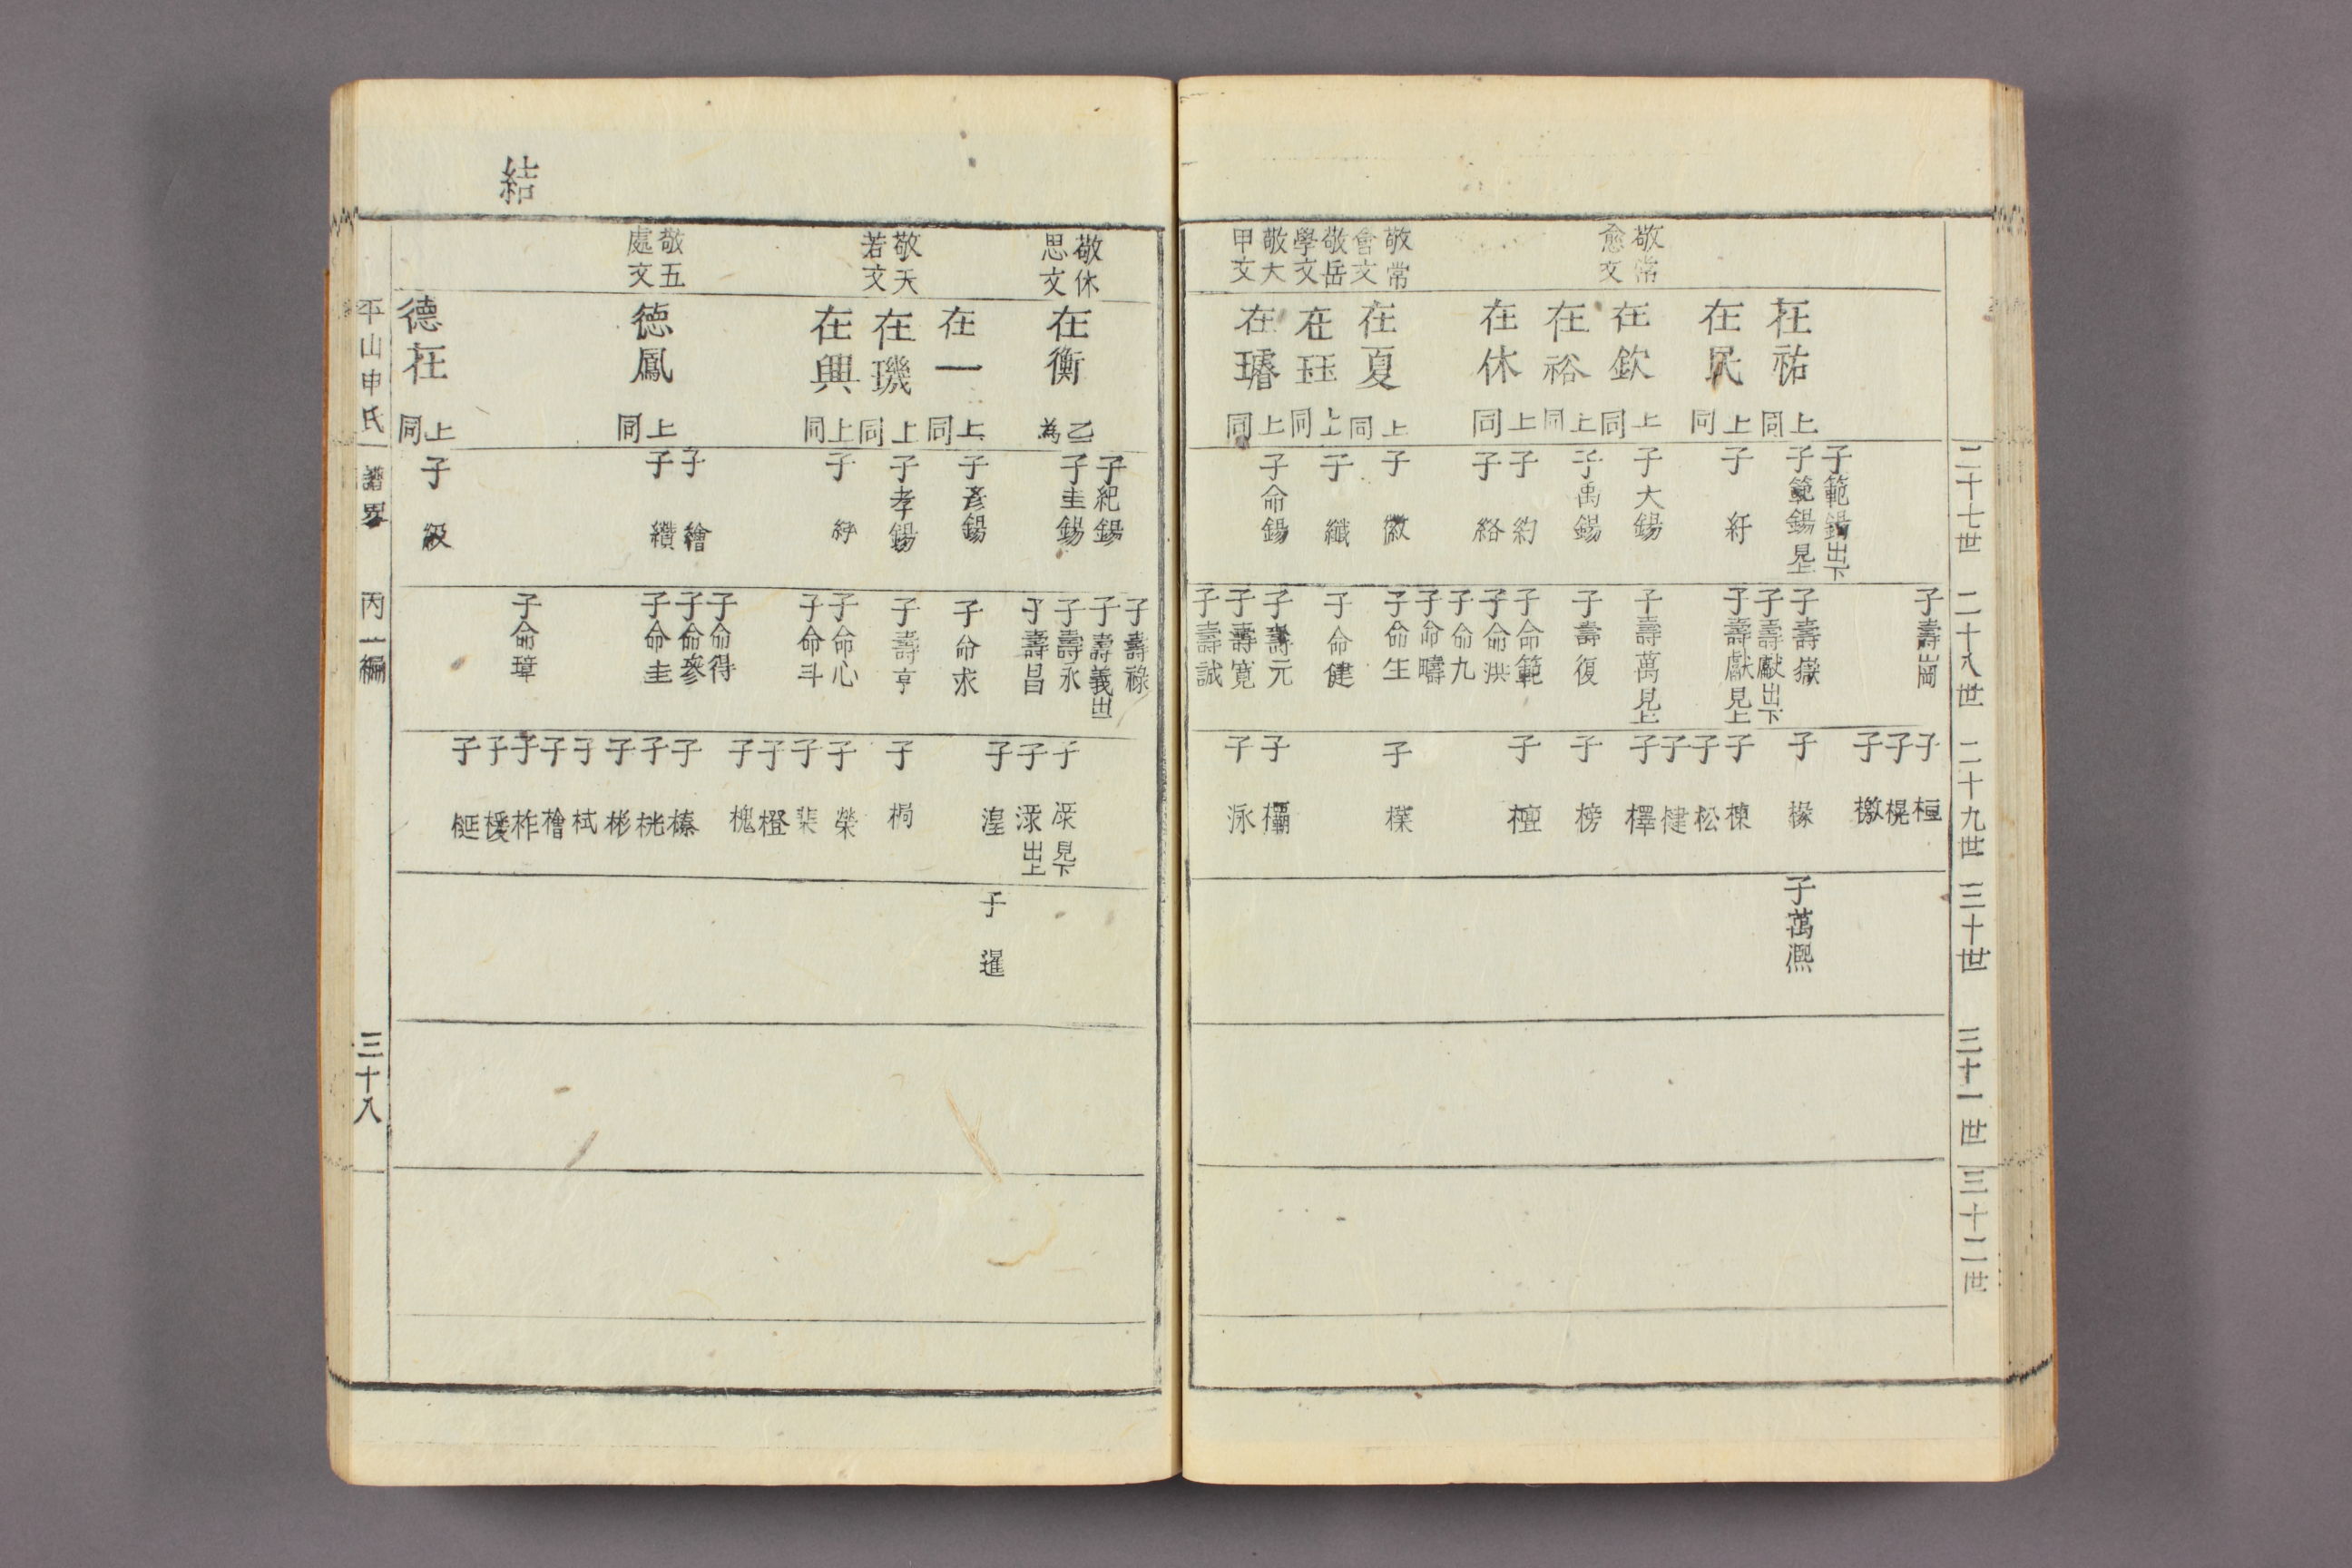 二十七世
二十八世
二十九世
三十世
三十一世
三十二世
敬常
愈文
敬常
會文
敬岳
學文
敬大
甲文
在祐
上同
在民
上同
在欽
上同
在裕
上同
在休
上同
在夏
上同
在珏
上同
在璿
上同
子範錫出下
子範錫見上
子紆
子大錫
子禹錫
子約
子絡
子徽
子纖
子命錫
子壽崗
子壽嶽
子壽獻出下
子壽獻見上
子壽萬見上
子壽復
子命範
子命洪
子命九
子命疇
子命生
子命健
子壽元
子壽寬
子壽誠
子桓
子榥
子檄
子椽
子楝
子松
子楗
子檡
子榜
子檀
子檏
子欛
子泳
子萬熙
結
敬休
思文
敬天
若文
敬五
處文
在衡
乙為
在一
上同
在璣
上同
在興
上同
德鳳
上同
德在
上同
子紀錫
子圭錫
子彥錫
子孝錫
子紓
子繪
子纘
子級
子壽祿
子壽義出
子壽永
子壽昌
子命求
子壽亨
子命心
子命斗
子命得
子命參
子命圭
子命璋
子渌見下
子渌出上
子湟
子梮
子榮
子棐
子橙
子槐
子榛
子桄
子彬
子栻
子檜
子柞
子楥
子梴
子暹
平山申氏
譜畧
丙二編
三十八